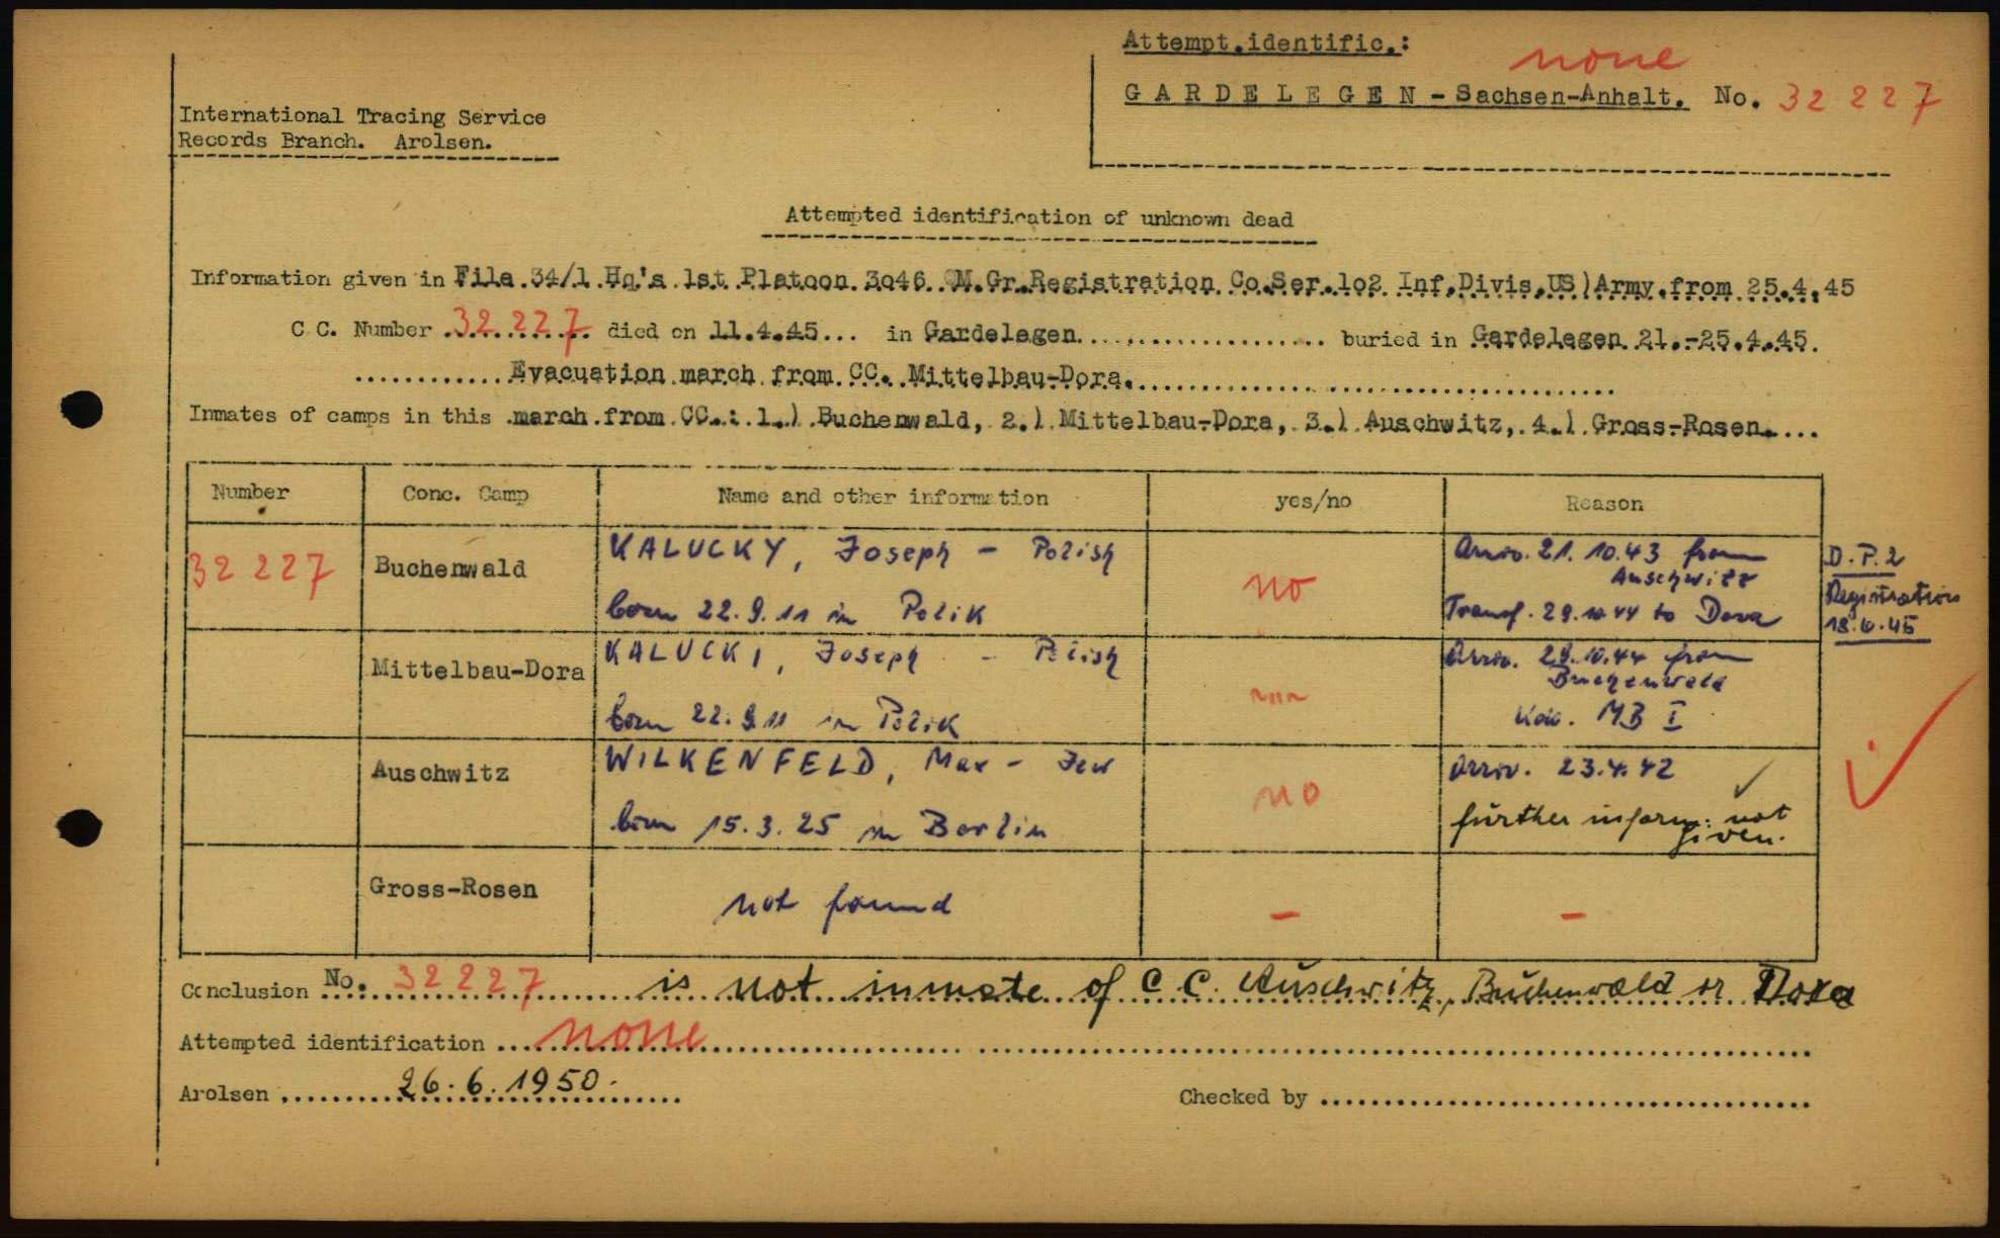 Attempt.identific.:
none
GARDELEGEN - Sachsen-Anhalt. No. 32 227
International Tracing Service
Records Branch. Arolsen.
Attempted identification of unknown dead
Information given in File.34/1.Hq's.1st.Platoon.3046. M.Gr.Registration.Co.Ser.102 Inf.Divis.US)Army.from.25.4.45
C C. Number 32 227 died on 11.4.45... in Gardelegen buried in Gardelegen 21.-25.4.45.
Evacuation march from CC. Mittelbau-Dora.
Inmates of camps in this march.from CC.: 1.) Buchenwald, 2.) Mittelbau-Dora, 3.) Auschwitz, 4.) Gross-Rosen.
Number Conc. Camp Name and other information yes/no Reason
32 227 Buchenwald KALUCKY, Joseph - Polish no Arriv. 21.10.43 from Auschwitz
born 22.9.11 in Polik Transf. 29.10.44 to Dora
D.P.2
Registration
18.6.45
Mittelbau-Dora KALUCKI, Joseph - Polish Arriv. 29.10.44 from Buchenwald
born 22.9.11 in Polik MB I
Auschwitz WILKENFELD, Max - Jew no Arriv. 23.4.42
born 15.3.25 in Berlin further inform: not given.
Gross-Rosen not found - -
Conclusion No. 32 227 is not inmate of C.C. Auschwitz, Buchenwald or Dora
Attempted identification none
Arolsen 26.6.1950. Checked by